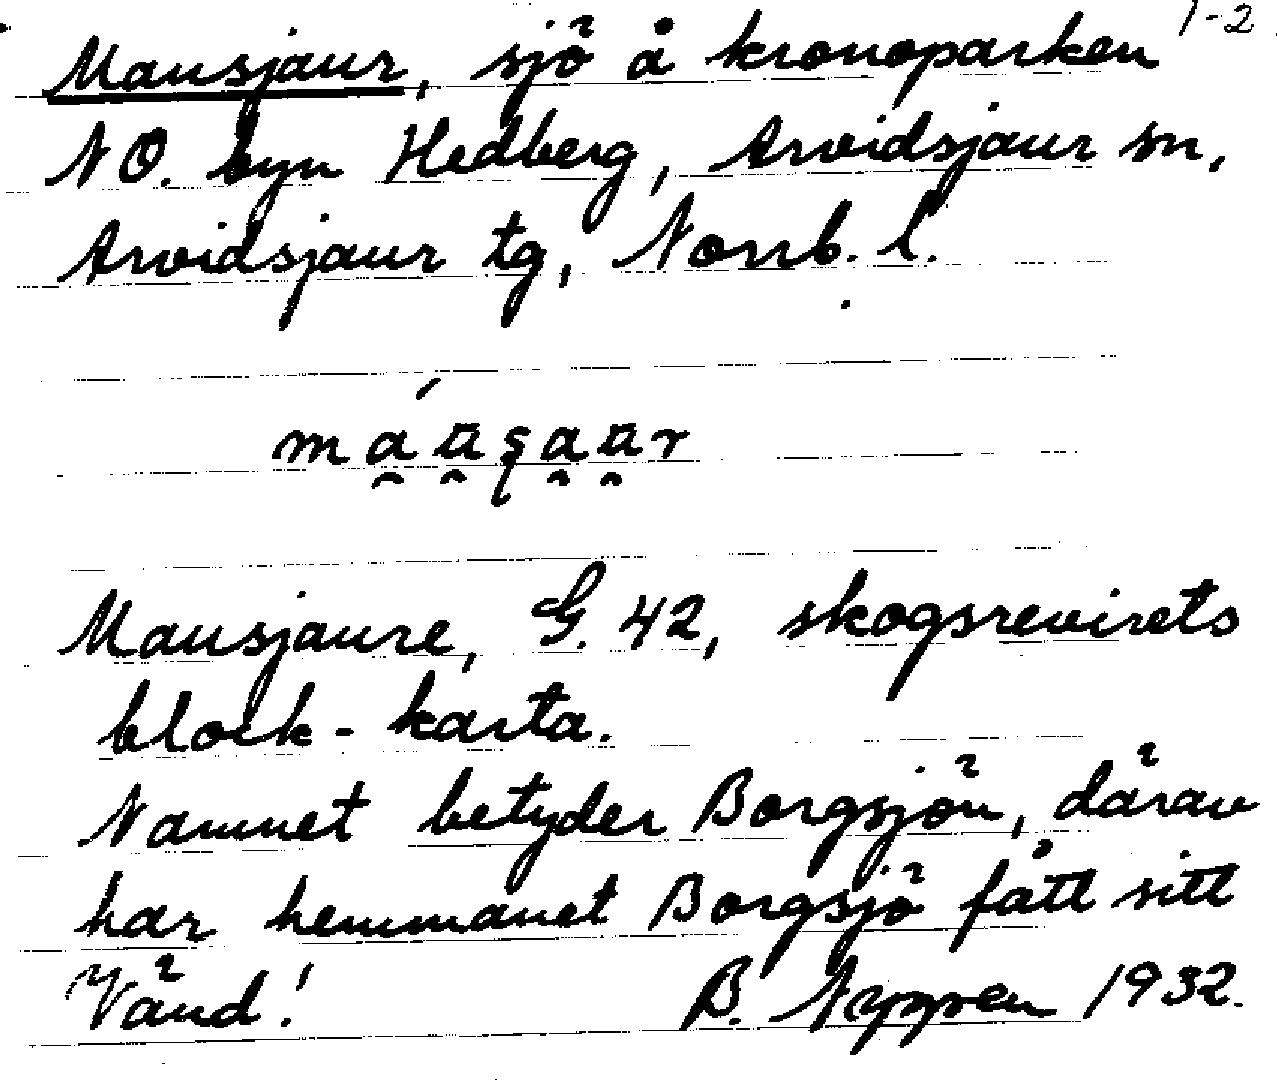 1-2
Mausjaur, sjö å kronoparken
NO. byn Hedberg, Arvidsjaur sn,
Arvidsjaur tg, Norrb. l.
Mausjaure, G. 42, skogsrevirets
block-karta.
Namnet betyder Borgsjön, därav
har hemmanet Borgsjö fått sitt
Vänd! B. 1932.